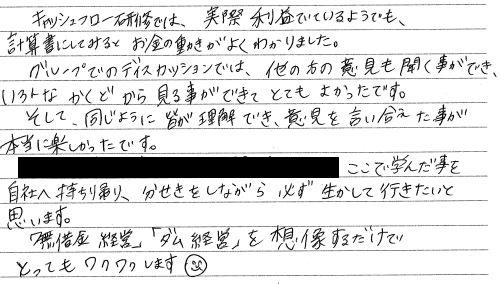 キャッシュフロー研修では、実際利益でているようでも、
計算書にしてみると お金の動きがよくわかりました。
グループでのディスカッションでは、他の方の意見も聞く事ができ、
いろトな かくどから 見る事ができて とても よかったです。
そして、同じように 皆が理解でき、意見を言い合えた事が
本当に楽しかったです。
ここで学んだ事を
自社へ持ち帰り、分せきをしながら 必ず 生かして行きたいと
思います。
「無借金経営」「ダム経営」を想像するだけで
とってもワクワクします